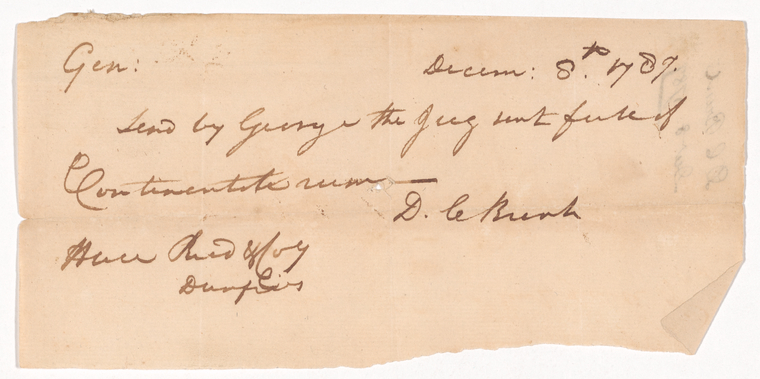 Gen: Decem: 8th 1789.
Send by George the Jug sent full of
Continental rum —
D. C. Brent
Reed & Coy
Dumfries